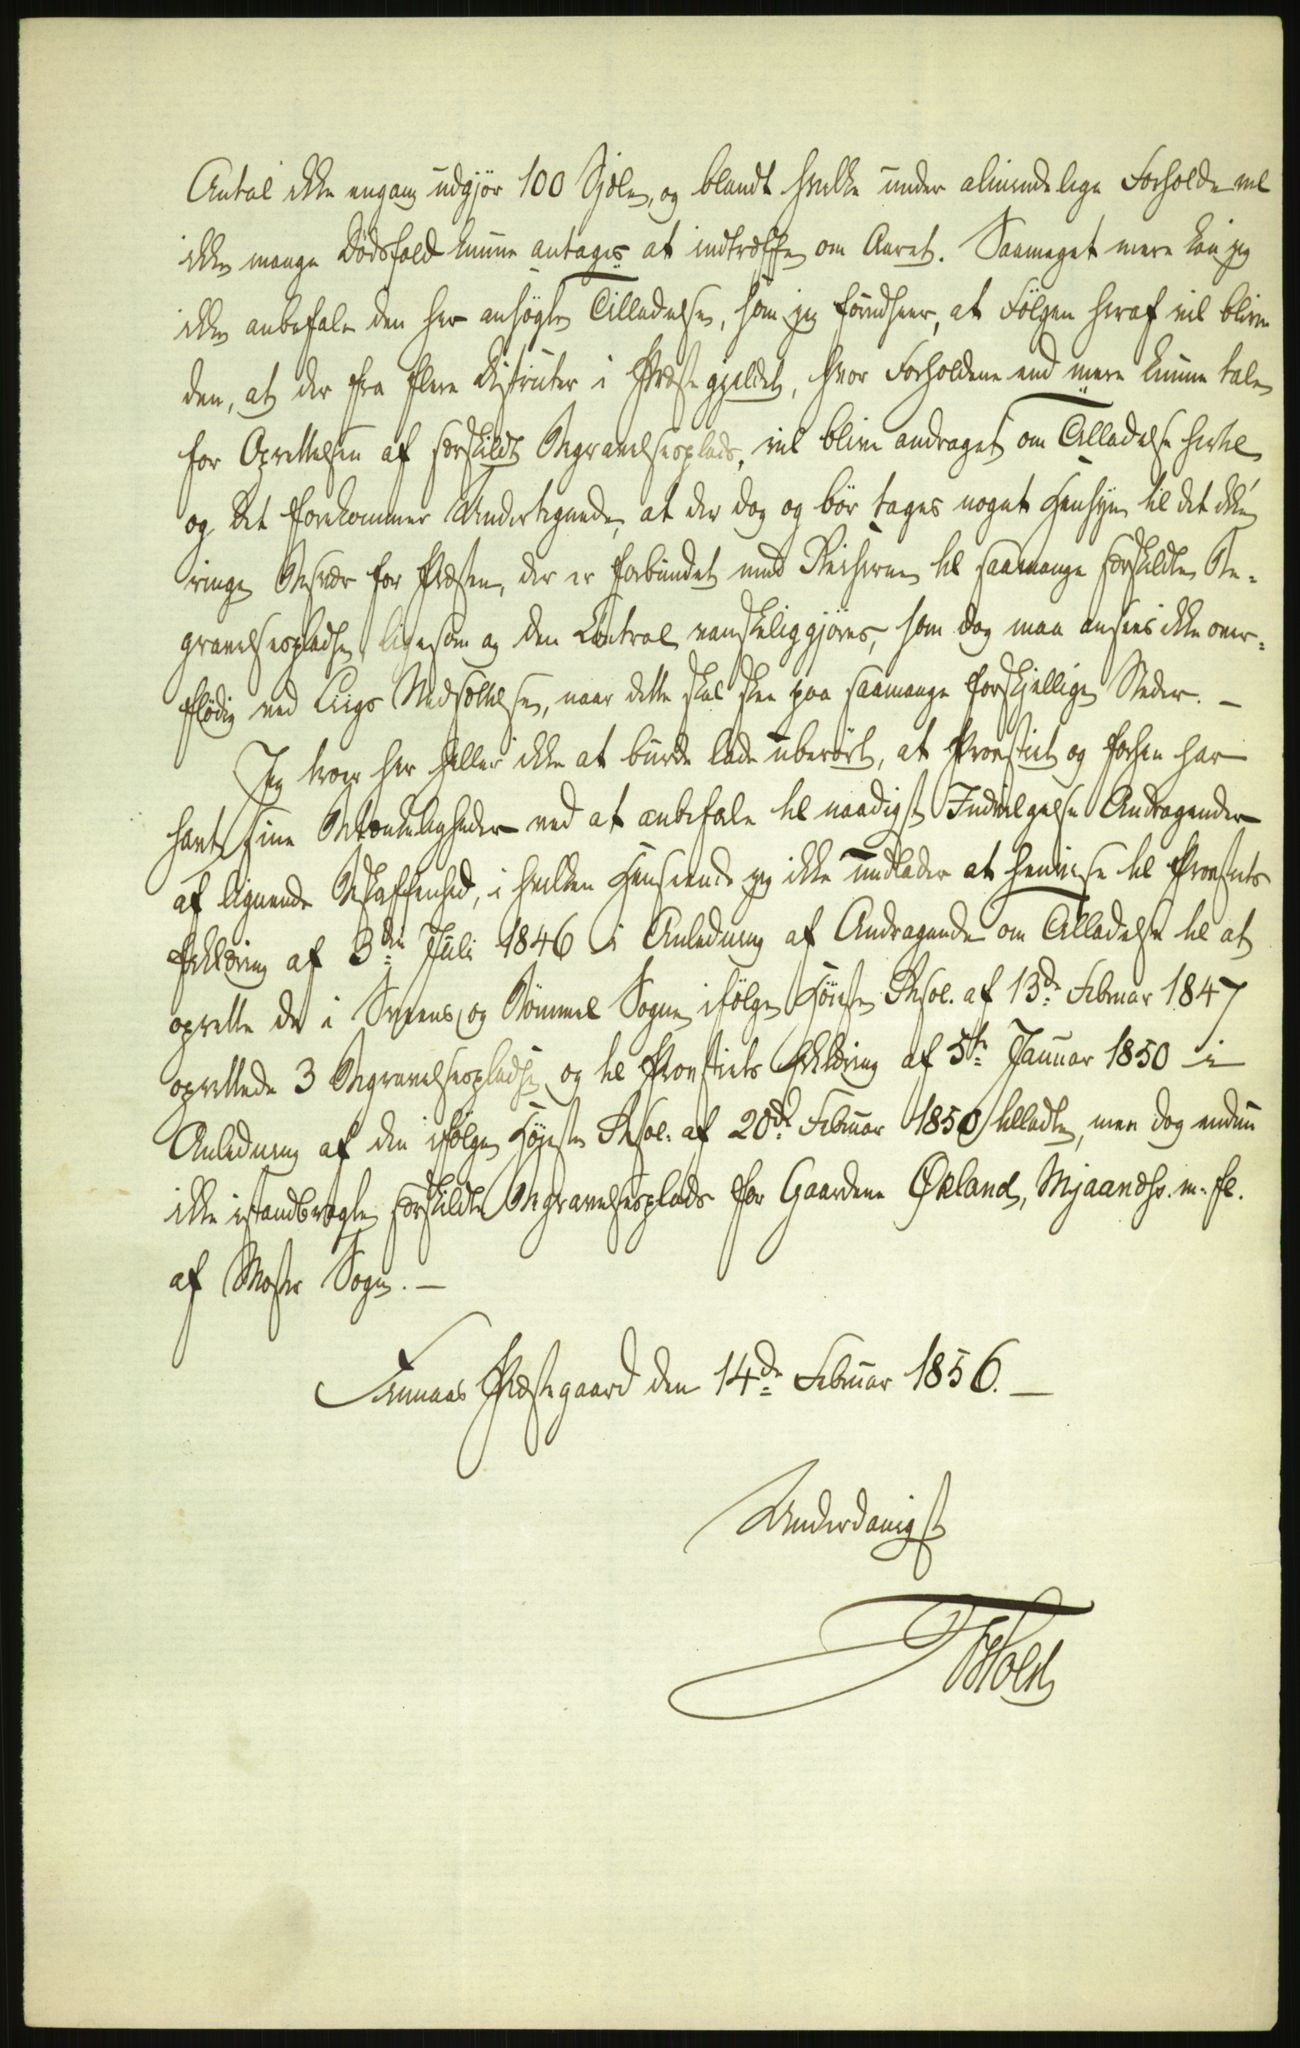 Antal ikke engang udgjør 100 Sjæle, og blandt hvilke under almindelige Forholde vel
ikke mange Dødsfald kunne antages at indtræffe om Aaret. Saameget mere kan jeg
ikke anbefale den her ansøgte Tilladelse, som jeg forudseer, at Følgen heraf vil blive
den, at der fra flere Distrikter i Præstegjeldet, hvor Forholdene end mere kunne tale
for Oprettelsen af særskildt Begravelsesplads, vil blive andraget om Tilladelse hertil,
og det forekommer Undertegnede, at der dog og bør tages noget Hensyn til det ikke
ringe Besvær for Præsten, der er forbundet med Reiserne til saamange særskildte Be-
gravelsespladse, ligesom og den Control vanskeliggjøres, som dog maa ansees ikke over-
flødig ved Liigs Nedsættelse, naar dette skal skee paa saamange forskjellige Steder. —
Jeg troer her heller ikke at burde lade uberørt, at Provstiet og forhen har
havt sine Betænkeligheder ved at anbefale til naadigst Indvilgelse Andragender
af lignende Beskaffenhed, i hvilken Henseende jeg ikke undlader at henvise til Provstiets
Erklæring af 3die Juli 1846 i Anledning af Andragende om Tilladelse til at
oprette de i Sveens og Bømmel Sogne ifølge Høieste Resol. af 13de Februar 1847
oprettede 3 Begravelsespladse, og til Provstiets Erklæring af 5te Januar 1850 i
Anledning af den ifølge Høieste Resol. af 20de Februar 1850 tilladte, men dog endnu
ikke istandbragte særskildte Begravelsesplads for Gaardene Økland, Mjaanæs m. fl.
af Moster Sogn. —
Finnaas Præstegaard den 14de Februar 1856. —
Underdanigst
Hold